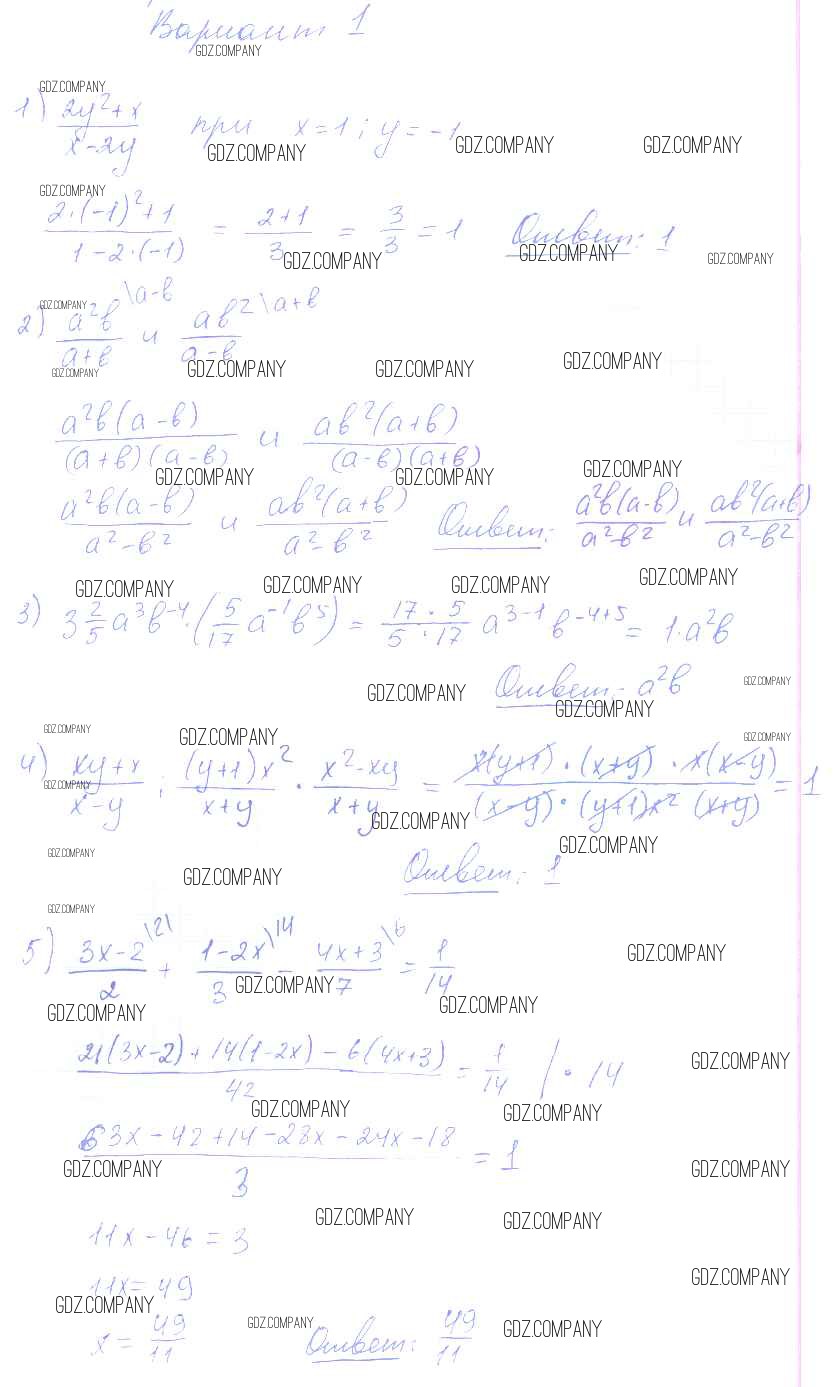 Вариант 1
GDZ.COMPANY
GDZ.COMPANY
1) (2y²+x)/(x-2y) при x=1; y=-1
GDZ.COMPANY GDZ.COMPANY GDZ.COMPANY
GDZ.COMPANY
(2·(-1)²+1)/(1-2·(-1)) = (2+1)/3 = 3/3 = 1 Ответ: 1
GDZ.COMPANY GDZ.COMPANY GDZ.COMPANY
GDZ.COMPANY
2) a²b/(a+b) \a-b и ab²/(a-b) \a+b
GDZ.COMPANY GDZ.COMPANY GDZ.COMPANY GDZ.COMPANY
a²b(a-b)/((a+b)(a-b)) и ab²(a+b)/((a-b)(a+b))
GDZ.COMPANY GDZ.COMPANY GDZ.COMPANY
a²b(a-b)/(a²-b²) и ab²(a+b)/(a²-b²) Ответ: a²b(a-b)/(a²-b²) и ab²(a+b)/(a²-b²)
GDZ.COMPANY GDZ.COMPANY GDZ.COMPANY GDZ.COMPANY
3) 3 2/5 a³b⁻⁴·(5/17 a⁻¹b⁵) = (17·5)/(5·17) a³⁻¹ b⁻⁴⁺⁵ = 1·a²b
GDZ.COMPANY Ответ: a²b GDZ.COMPANY
GDZ.COMPANY
GDZ.COMPANY GDZ.COMPANY GDZ.COMPANY
4) (xy+x)/(x-y) : ((y+1)x²)/(x+y) · (x²-xy)/(x+y) = (x(y+1)·(x+y)·x(x-y))/((x-y)·(y+1)x²(x+y)) = 1
GDZ.COMPANY GDZ.COMPANY
GDZ.COMPANY GDZ.COMPANY GDZ.COMPANY
Ответ: 1
GDZ.COMPANY
5) (3x-2)/2 \21 + (1-2x)/3 \14 - (4x+3)/7 \6 = 1/14
GDZ.COMPANY GDZ.COMPANY GDZ.COMPANY GDZ.COMPANY
(21(3x-2)+14(1-2x)-6(4x+3))/42 = 1/14 | · 14
GDZ.COMPANY GDZ.COMPANY GDZ.COMPANY
(63x-42+14-28x-24x-18)/3 = 1
GDZ.COMPANY GDZ.COMPANY
GDZ.COMPANY GDZ.COMPANY
11x-46=3
11x=49
GDZ.COMPANY GDZ.COMPANY
x = 49/11 Ответ: 49/11
GDZ.COMPANY GDZ.COMPANY